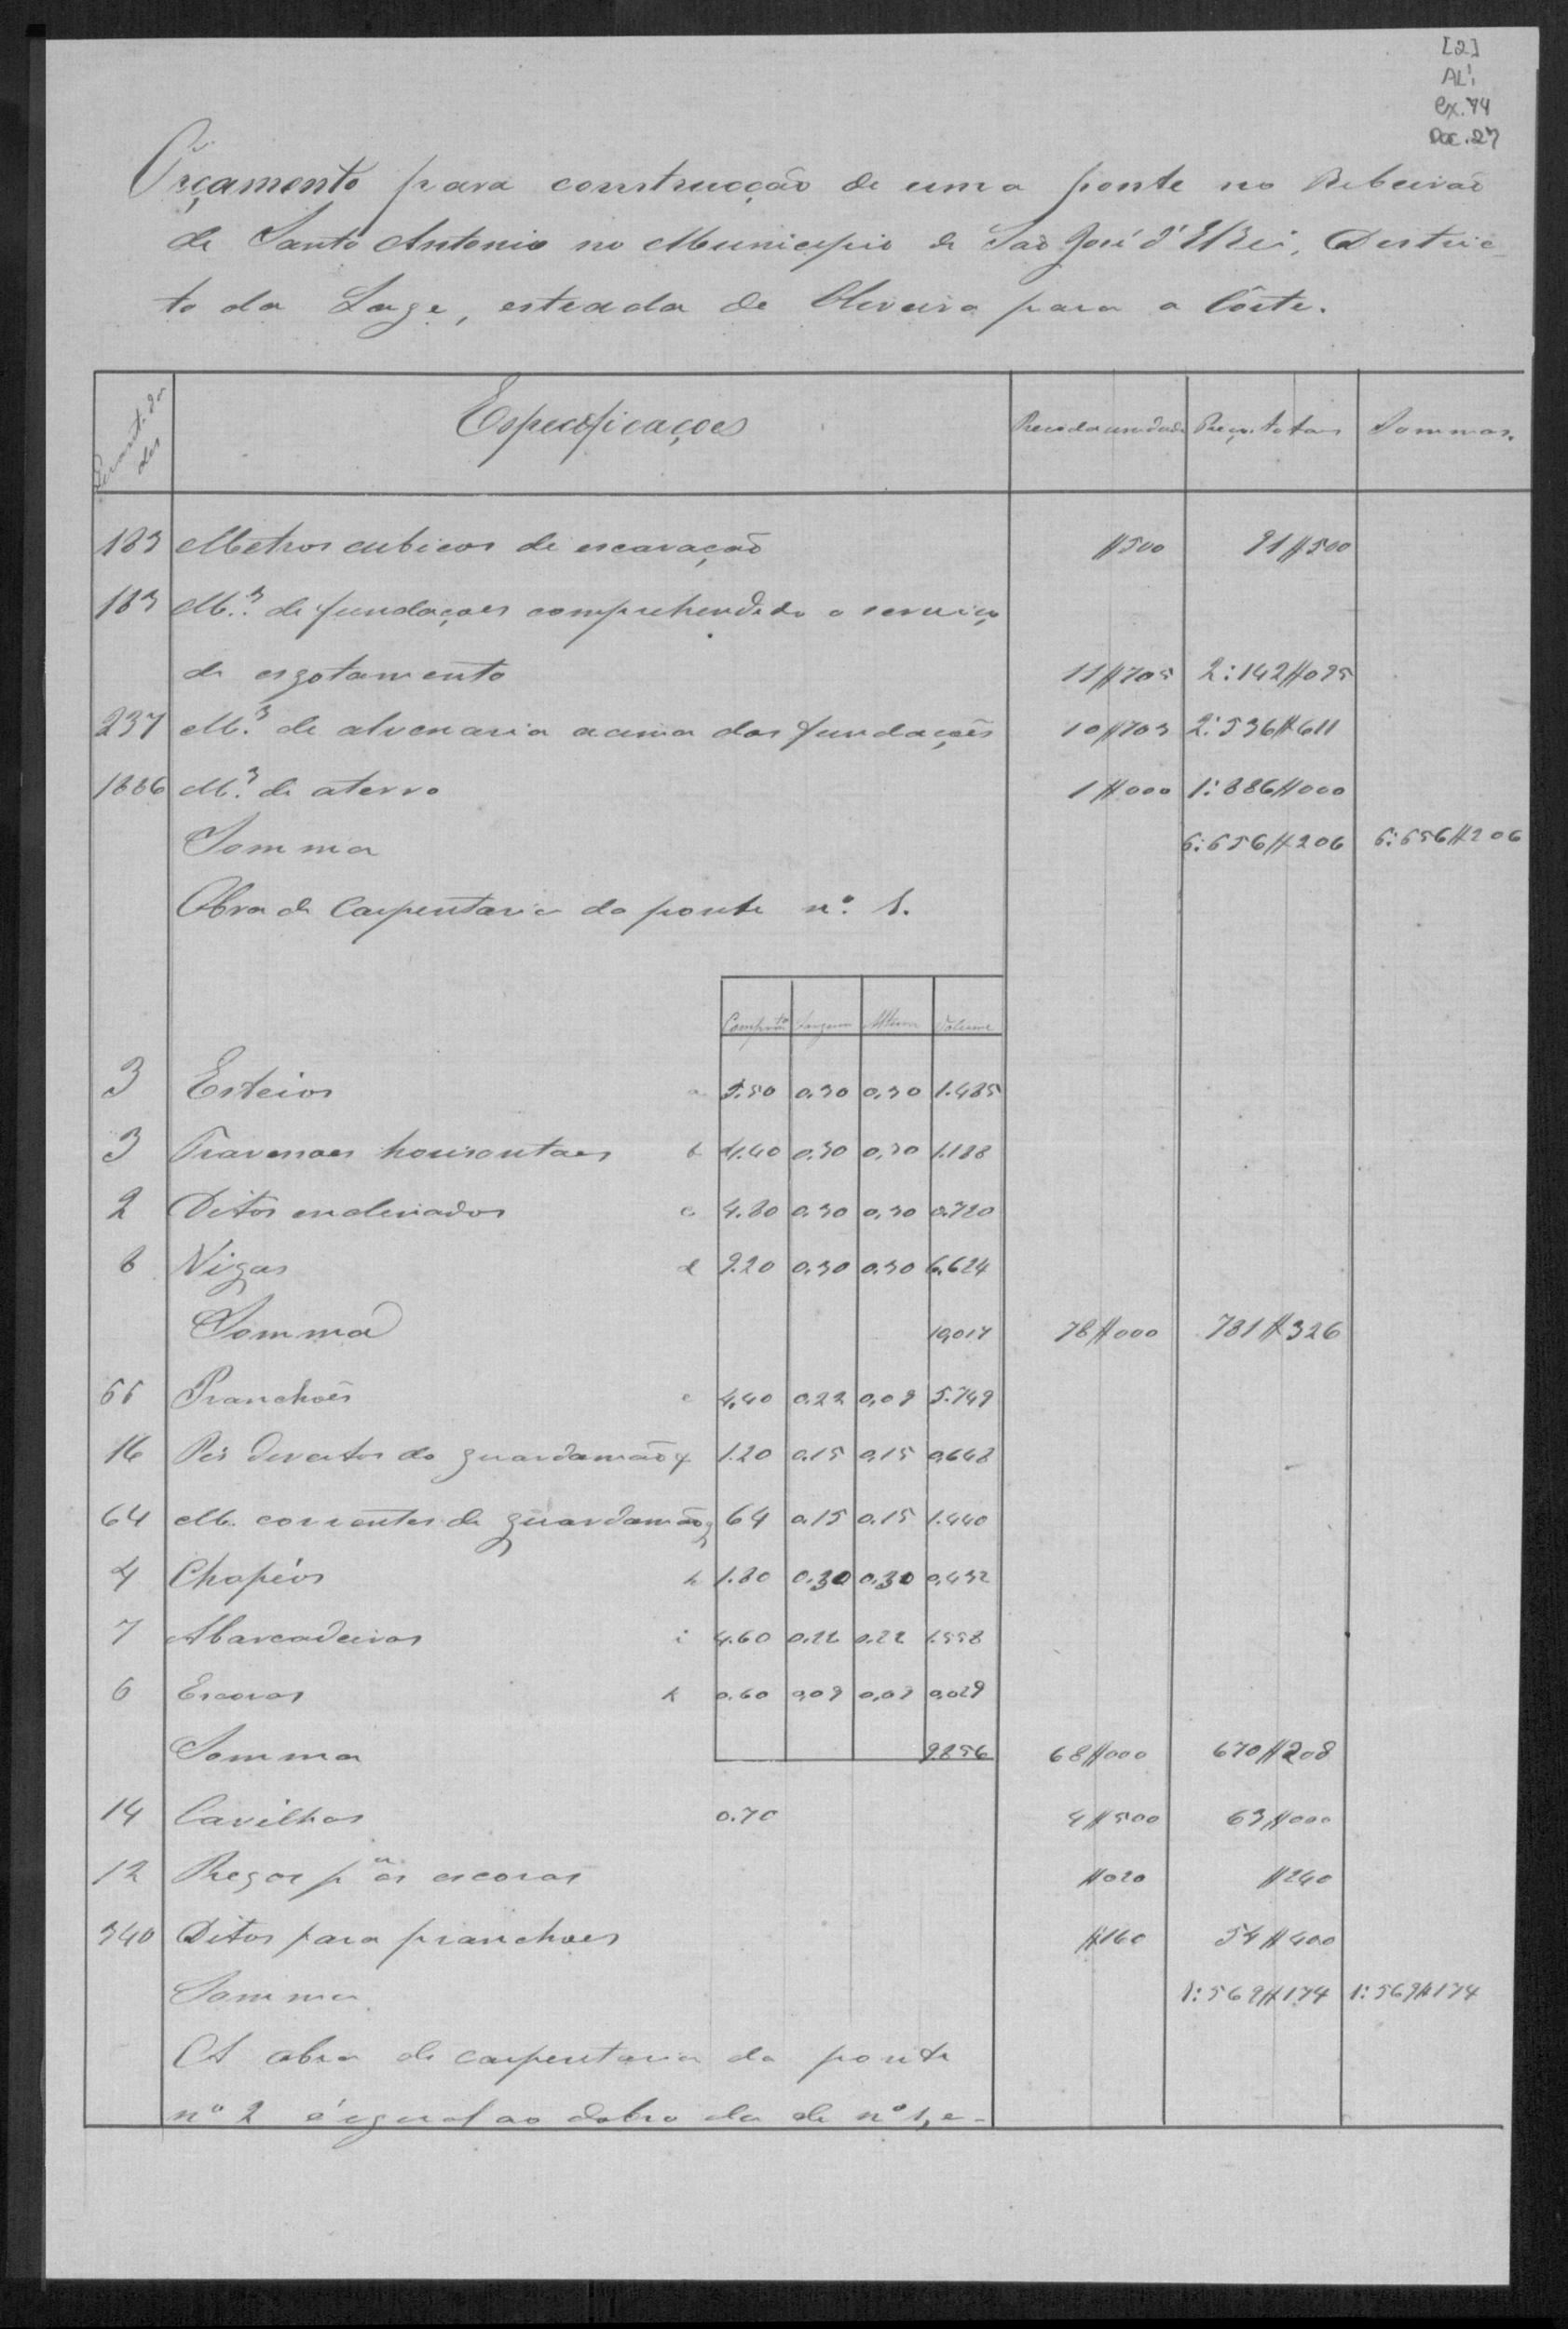 [2]
AL1
Cx. 74
Doc. 27
Orçamento para construcção de uma ponte no Ribeirão
de Santo Antonio no Municipio de São José d'ElRei, Distric-
to da Lage, estrada de Oliveira para a Côrte.
Quantidades Especificações Preço da unidade Preços totaes Sommas.
183 Metros cubicos de escavação #500 91#500
183 M.³ de fundações comprehendido o serviço
de esgotamento 11#705 2:142#095
237 M.³ de alvenaria acima das fundações 10#703 2:536#611
1886 M.³ de aterro 1#000 1:886#000
Somma 6:656#206 6:656#206
Obra de Carpentaria da ponte nº. 1.
Comprim.to Largura Altura Volume
3 Esteios a 5.50 0.30 0,30 1.485
3 Travessoes horisontaes b 4.40 0.30 0,30 1.188
2 Ditos enclinados c 4.80 0.30 0,30 0.720
8 Vigas d 9.20 0.30 0.30 6.624
Somma 10,017 78#000 781#326
66 Pranchões e 4,40 0.22 0,09 5.749
16 Pés direitos do guardamão f 1.20 0.15 0,15 0,648
64 M. correntes de guardamão g 64 0.15 0.15 1.440
4 Chapéos h 1.20 0.30 0.30 0,432
7 Abarcadeiras i 4.60 0.22 0.22 1.558
6 Escoras k 0.60 0,09 0,09 0,029
Somma 9.856 68#000 670#208
14 Cavilhas 0.70 4#500 63#000
12 Pregos p.a as escoras #020 #240
340 Ditos para pranchoes #160 54#400
Somma 1:569#174 1:569#174
A obra de carpentaria da ponte
nº 2 é igual ao dobro da de nº 1, e-